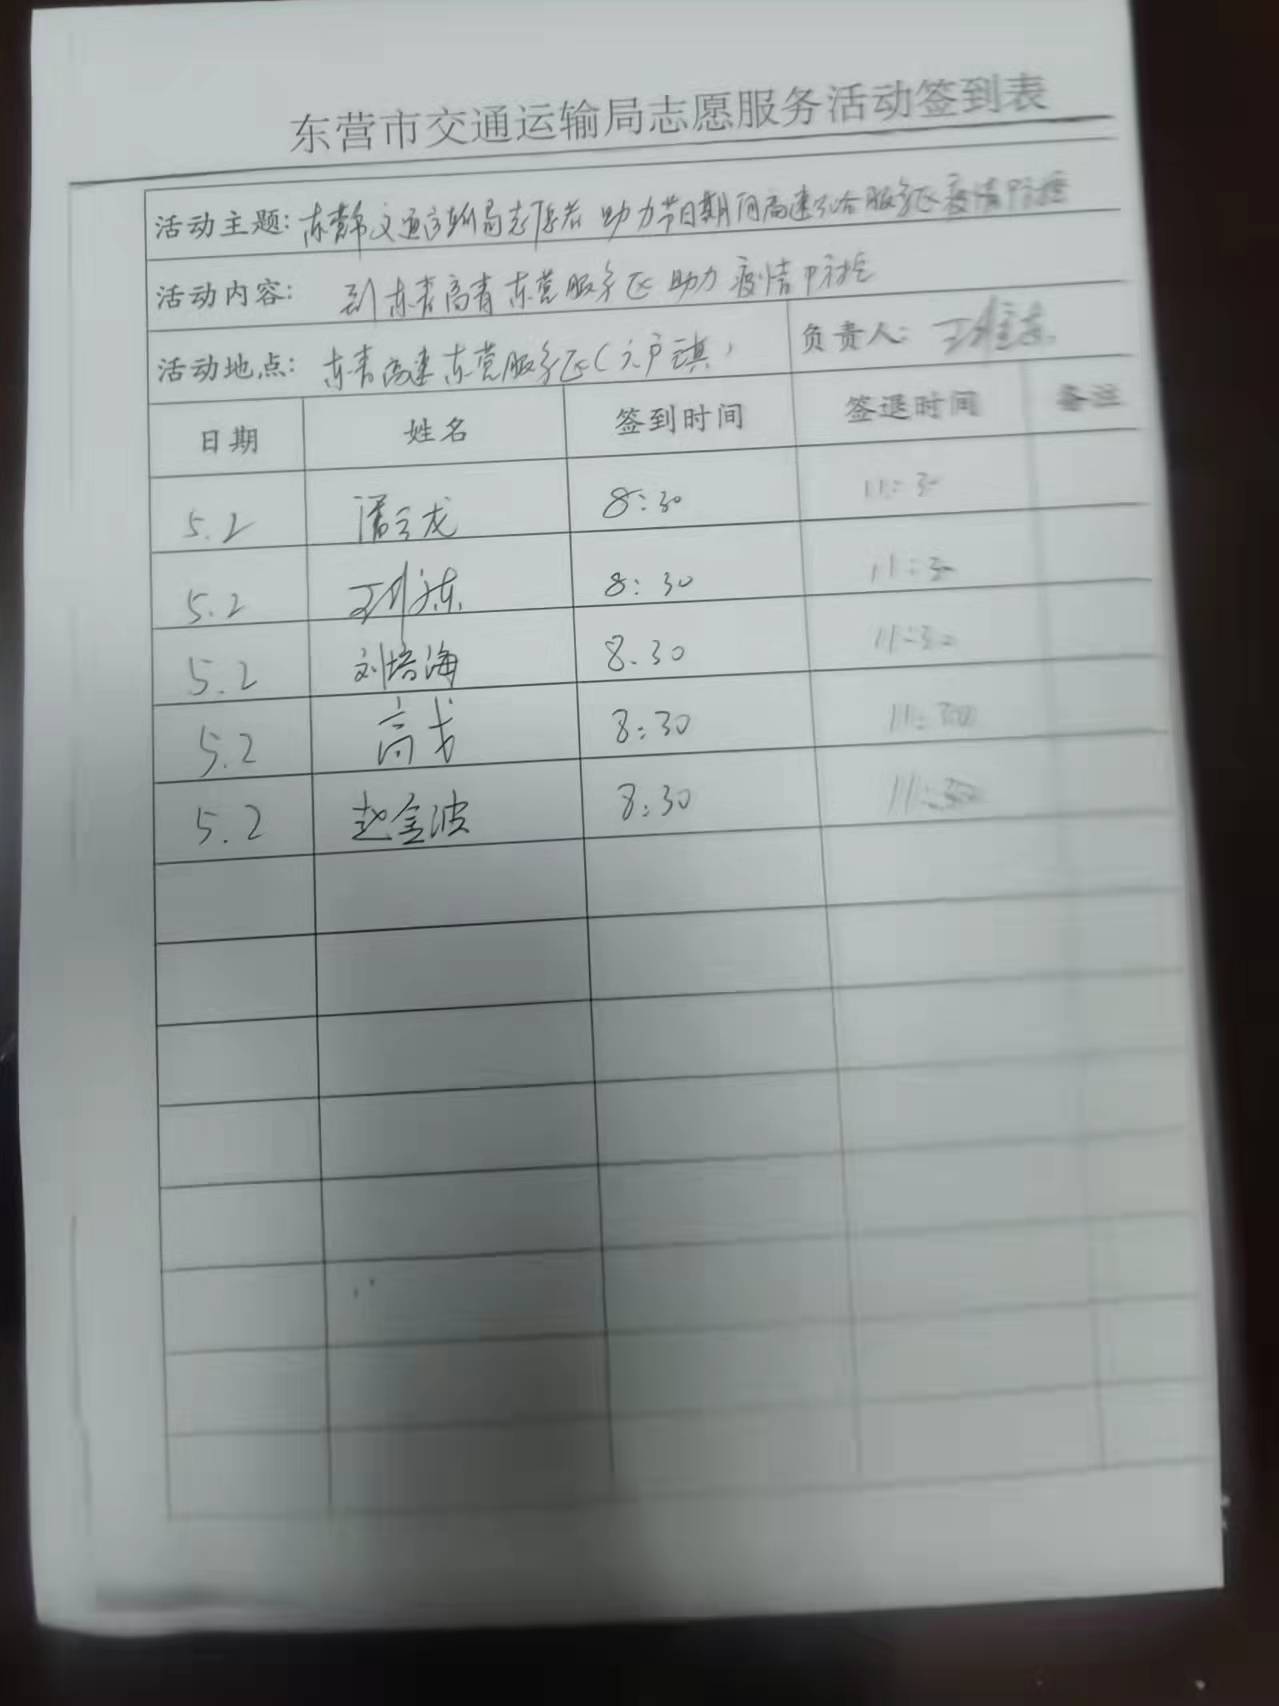 东营市交通运输局志愿服务活动签到表
活动主题: 东营市交通运输局志愿者 助力节日期间高速 服务区疫情防控
活动内容: 到东青高青东营服务区助力疫情防控
活动地点: 东青高速东营服务区( 负责人:
日期 姓名 签到时间 签退时间 备注
5.2 潘云龙 8:30 11:30
5.2 8:30 11:30
5.2 刘培海 8.30 11:30
5.2 高戈 8:30 11:30
5.2 赵金波 8:30 11:30